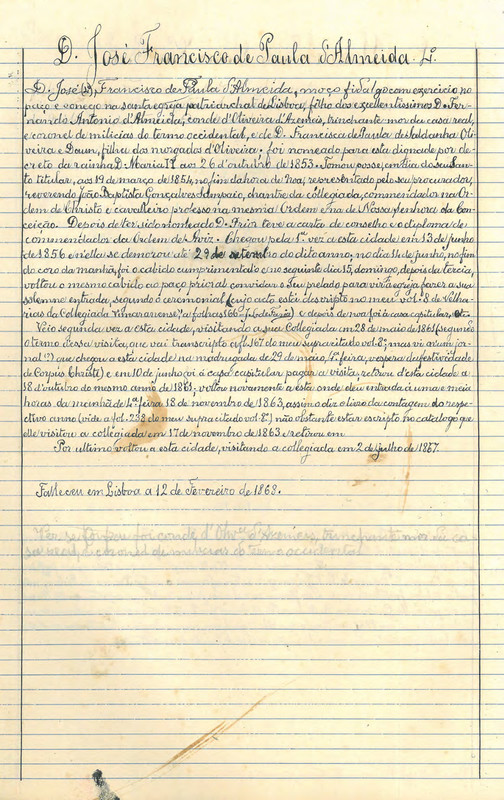 D. José Francisco de Paula d'Almeida. Lº.
D. José (?), Francisco de Paula d'Almeida, moço fidalgo com exercicio no
paço e conego na santa egreja patriarchal de Lisboa, filho dos excellentissimos D. Fer-
nando Antonio d'Almeida, conde d'Oliveira d'Azemeis, trinchante-mor da casa real,
e coronel de milicias do termo occidental, e de D. Francisca de Paula de Saldanha Oli-
veira e Daun, filha dos morgados d'Oliveira. foi nomeado para esta dignidade por de-
creto da rainha D. Maria II aos 26 d'outubro de 1853. Tomou posse, em dia do seu San-
to titular, aos 19 de março de 1854, no fim da hora de Noa, representado pelo seu procurador,
reverendo João Baptista Gonçalves Sampaio, chantre da collegiada, commendador na Or-
dem de Christo e cavalheiro professo na mesma Ordem e na de Nossa Senhora da Con-
ceição. Depois de ter sido nomeado D. Prior teve a carta de conselho e o diploma de
commendador da Ordem de Aviz. Chegou pela 1ª vez a esta cidade em 13 de junho
de 1856 e n'ella se demorou até 29 de setembro do dito anno, no dia 14 de junho, no fim
do coro da manhã, foi o cabido cumprimental-o e no seguinte dia 15, domingo, depois da tercia,
voltou o mesmo cabido ao paço prioral convidar o seu prelado para vir á egreja fazer a sua
solemne entrada, segundo o ceremonial (cujo acto está descripto no meu vol. 8 de Velha-
rias da Collegiada Vimaranense, a folhas 166) e depois de noa foi á casa capitular.
Veio segunda vez a esta cidade, visitando a sua Collegiada em 28 de maio de 1861 (segundo
o termo dessa visita, que vai transcripto a fl. 167 do meu supracitado vol. 8; mas vi n'um jor-
nal que chegou a esta cidade na madrugada de 29 de maio, 4ª feira, vespera da festividade
de Corpus Christi) e em 10 de junho foi á casa capitular pagar a visita, retirou d'esta cidade a
18 d'outubro do mesmo anno de 1861; voltou novamente a esta onde deu entrada á uma e meia
horas da manhã de 4ª feira 18 de novembro de 1863, assim o diz o livro da contagem do respe-
ctivo anno (vide a fol. 238 do meu supracitado vol. 8º) não obstante estar escripto no catalogo que
elle visitou a collegiada em 17 de novembro de 1863 e retirou em
Por ultimo voltou a esta cidade, visitando a collegiada em 2 de julho de 1867.
Falleceu em Lisboa a 12 de Fevereiro de 1868.
foi conde d'Oliv. d'Azemeis, trinchante mor da ca-
sa real, e coronel de milicias do termo occidental